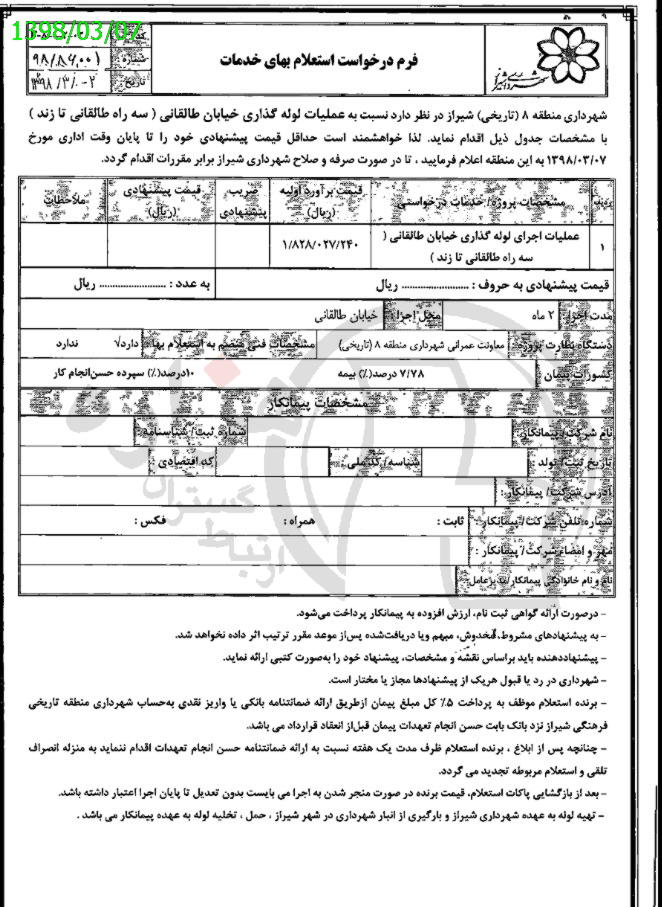 1398/03/07
شماره: ۹۸/۸۹.۰۰۱
تاریخ:
فرم درخواست استعلام بهای خدمات
شهرداری منطقه ۸ (تاریخی) شیراز در نظر دارد نسبت به عملیات لوله گذاری خیابان طالقانی ( سه راه طالقانی تا زند )
با مشخصات جدول ذیل اقدام نماید. لذا خواهشمند است حداقل قیمت پیشنهادی خود را تا پایان وقت اداری مورخ
۱۳۹۸/۰۳/۰۷ به این منطقه اعلام فرمایید ، تا در صورت صرفه و صلاح شهرداری شیراز برابر مقررات اقدام گردد.
ردیف مشخصات پروژه/ خدمات درخواستی قیمت برآورد اولیه (ریال) ضریب پیشنهادی قیمت پیشنهادی (ریال) ملاحظات
۱ عملیات اجرای لوله گذاری خیابان طالقانی ( ۱/۸۲۸/۰۲۷/۲۴۰
سه راه طالقانی تا زند )
قیمت پیشنهادی به حروف : ........................ ریال به عدد : ........................ ریال
مدت اجرا: ۲ ماه محل اجرا: خیابان طالقانی
دستگاه نظارت پروژه: معاونت عمرانی شهرداری منطقه ۸ (تاریخی) مشخصات فنی منضم به استعلام بها: دارد√ ندارد
کسورات پیمان : ۷/۷۸ درصد(٪) بیمه ۱۰درصد(٪) سپرده حسن‌انجام کار
مشخصات پیمانکار
نام شرکت/ پیمانکار: شماره ثبت/ شناسنامه:
تاریخ ثبت/ تولد : شناسه/ کدملی : کد اقتصادی :
آدرس شرکت/ پیمانکار:
شماره تلفن شرکت/ پیمانکار: ثابت : همراه : فکس :
مهر و امضاء شرکت/ پیمانکار :
نام و نام خانوادگی پیمانکار/مدیرعامل:
- درصورت ارائه گواهی ثبت نام، ارزش افزوده به پیمانکار پرداخت می‌شود.
- به پیشنهادهای مشروط، مخدوش، مبهم ویا دریافت‌شده پس‌از موعد مقرر ترتیب اثر داده نخواهد شد.
- پیشنهاددهنده باید براساس نقشه و مشخصات، پیشنهاد خود را به‌صورت کتبی ارائه نماید.
- شهرداری در رد یا قبول هریک از پیشنهادها مجاز یا مختار است.
- برنده استعلام موظف به پرداخت ۵٪ کل مبلغ پیمان ازطریق ارائه ضمانتنامه بانکی یا واریز نقدی به‌حساب شهرداری منطقه تاریخی
فرهنگی شیراز نزد بانک بابت حسن انجام تعهدات پیمان قبل‌از انعقاد قرارداد می باشد.
- چنانچه پس از ابلاغ ، برنده استعلام ظرف مدت یک هفته نسبت به ارائه ضمانتنامه حسن انجام تعهدات اقدام ننماید به منزله انصراف
تلقی و استعلام مربوطه تجدید می گردد.
- بعد از بازگشایی پاکات استعلام، قیمت برنده در صورت منجر شدن به اجرا می بایست بدون تعدیل تا پایان اجرا اعتبار داشته باشد.
- تهیه لوله به عهده شهرداری شیراز و بارگیری از انبار شهرداری در شهر شیراز ، حمل ، تخلیه لوله به عهده پیمانکار می باشد .